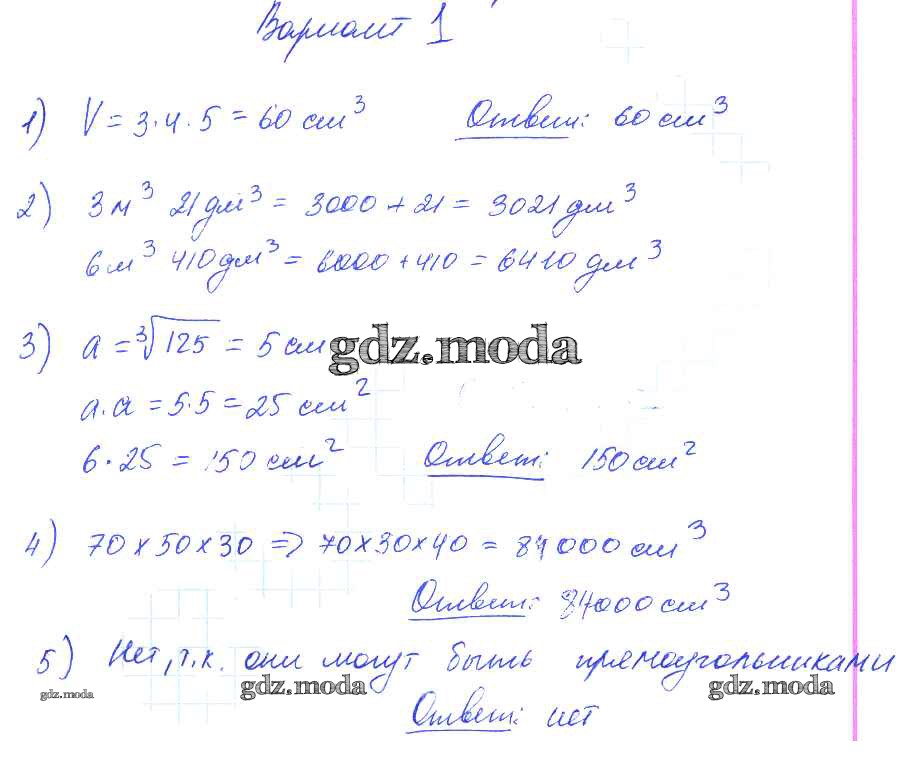 Вариант 1
1) V = 3·4·5 = 60 см³ Ответ: 60 см³
2) 3 м³ 21 дм³ = 3000 + 21 = 3021 дм³
6 м³ 410 дм³ = 6000 + 410 = 6410 дм³
3) a = ³√125 = 5 см
gdz.moda
a·a = 5·5 = 25 см²
6·25 = 150 см² Ответ: 150 см²
4) 70×50×30 => 70×30×40 = 84000 см³
Ответ: 84000 см³
5) Нет, т.к. они могут быть прямоугольниками
gdz.moda gdz.moda gdz.moda
Ответ: нет